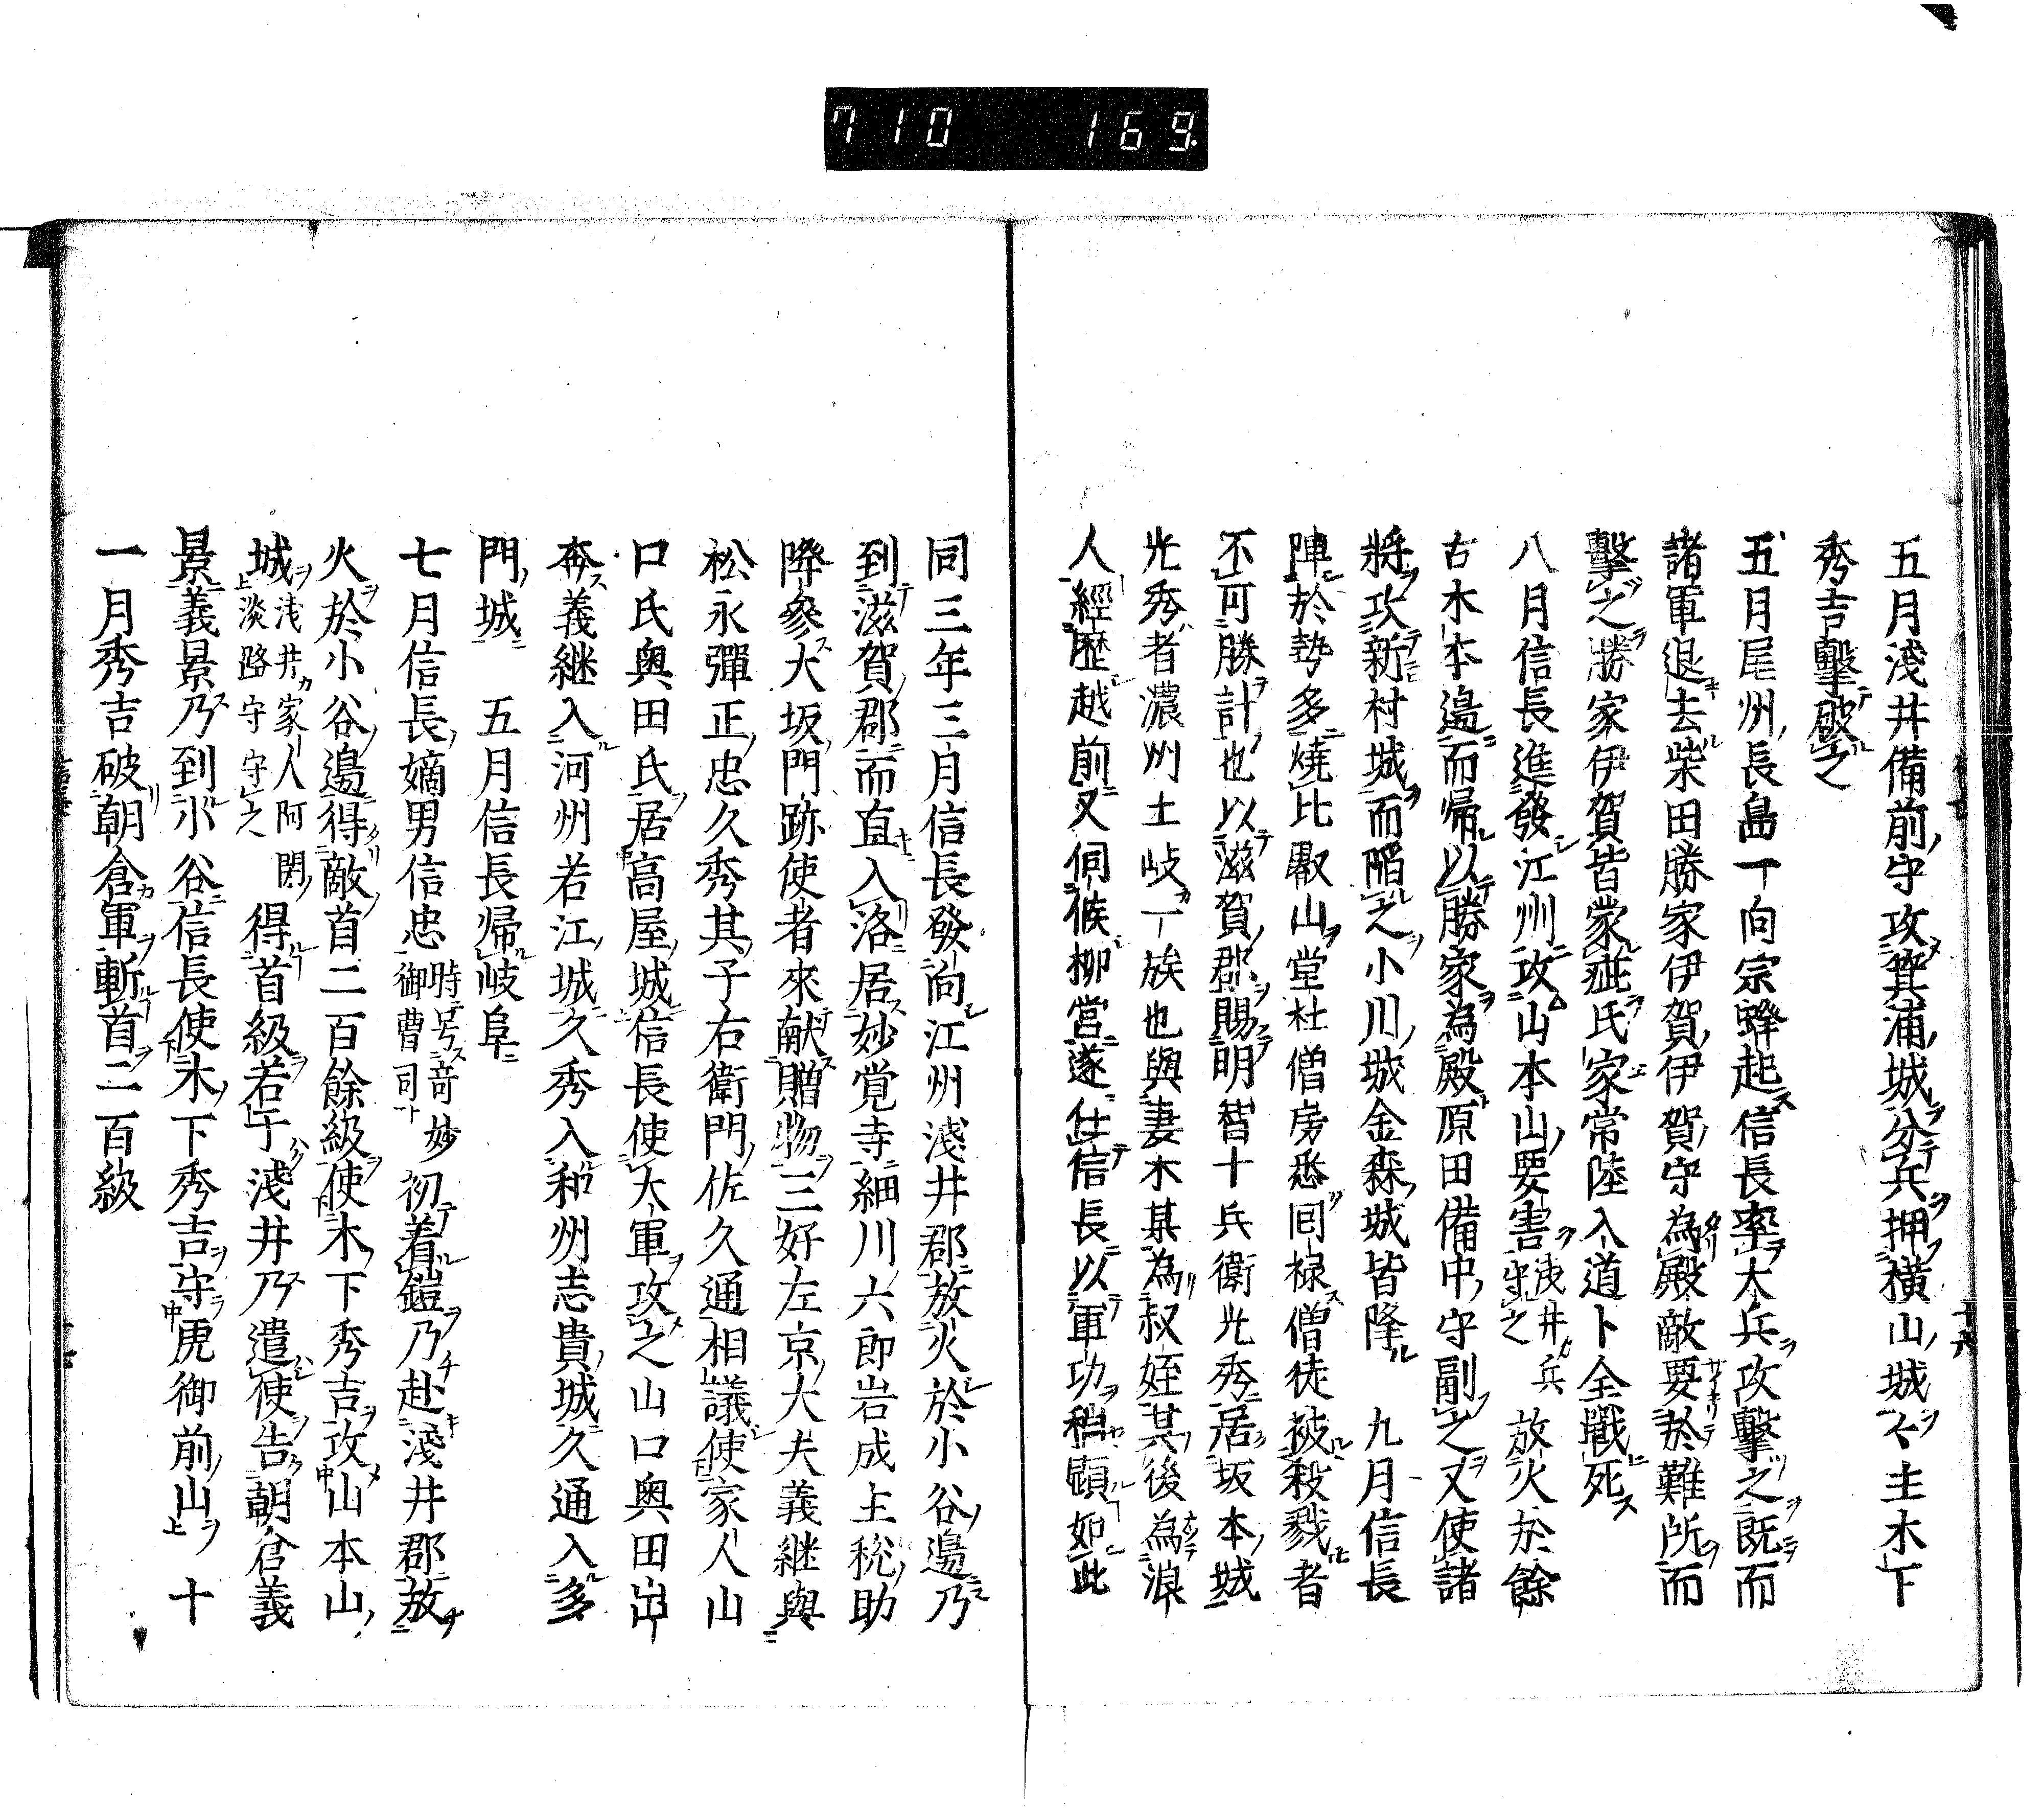 710 169
五月淺井備前守攻箕浦城分兵押横山城〻主木下
秀吉擊破之
五月尾州長島一向宗蜂起信長率大兵攻擊之既而
諸軍退去柴田勝家伊賀伊賀守為殿敵要於難所而
擊之勝家伊賀皆蒙疵氏家常陸入道卜全戰死
八月信長進發江州攻山本山要害淺井兵守之放火於餘
古木本邉而帰以勝家為殿原田備中守副之又使諸
將攻新村城而陷之小川城金森城皆隆 九月信長
陣於勢多燒比叡山堂社僧房悉囘禄僧徒被殺戮者
不可勝計也以滋賀郡賜明智十兵衛光秀居坂本城
光秀者濃州土岐一族也與妻木某為叔姪其後為浪
人經歷越前又伺候柳營遂仕信長以軍功稍顕如此
同三年三月信長發向江州淺井郡放火於小谷邉乃
到滋賀郡而直入洛居妙覚寺細川六郎岩成主税助
降參大坂門跡使者來献贈物三好左京大夫義継與
松永彈正忠久秀其子右衛門佐久通相議使家人山
口氏奥田氏居高屋城信長使大軍攻之山口奥田出
奔義継入河州若江城久秀入和州志貴城久通入多
門城 五月信長帰岐阜
七月信長嫡男信忠時号奇妙御曹司初着鎧乃赴淺井郡放
火於小谷邉得敵首二百餘級使木下秀吉攻山本山
城淺井家人阿閉淡路守守之得首級若干淺井乃遣使告朝倉義
景義景乃到小谷信長使木下秀吉守虎御前山 十
一月秀吉破朝倉軍斬首二百級